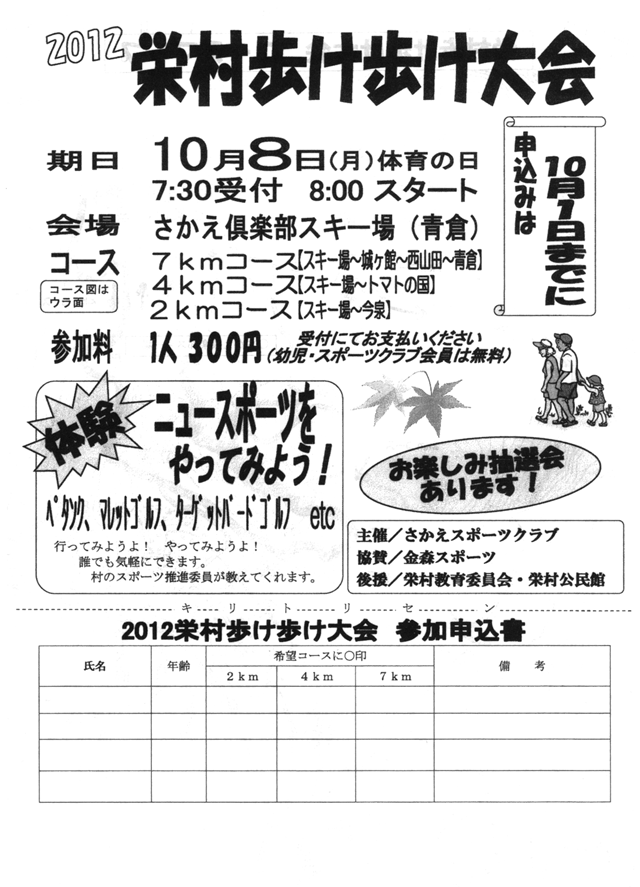 2012 栄村歩け歩け大会
申込みは
10月1日までに
期日 10月8日(月)体育の日
7:30受付 8:00 スタート
会場 さかえ倶楽部スキー場(青倉)
コース 7kmコース【スキー場~城ヶ館~西山田~青倉】
コース図は
ウラ面
4kmコース【スキー場~トマトの国】
2kmコース【スキー場~今泉】
参加料 1人 300円 受付にてお支払いください
(幼児・スポーツクラブ会員は無料)
体験
ニュースポーツを
やってみよう!
ペタンク、マレットゴルフ、ターゲットバードゴルフ etc
行ってみようよ! やってみようよ!
誰でも気軽にできます。
村のスポーツ推進委員が教えてくれます。
お楽しみ抽選会
あります!
主催/さかえスポーツクラブ
協賛/金森スポーツ
後援/栄村教育委員会・栄村公民館
キリトリセン
2012栄村歩け歩け大会 参加申込書
氏名 年齢 希望コースに○印 備考
2km 4km 7km